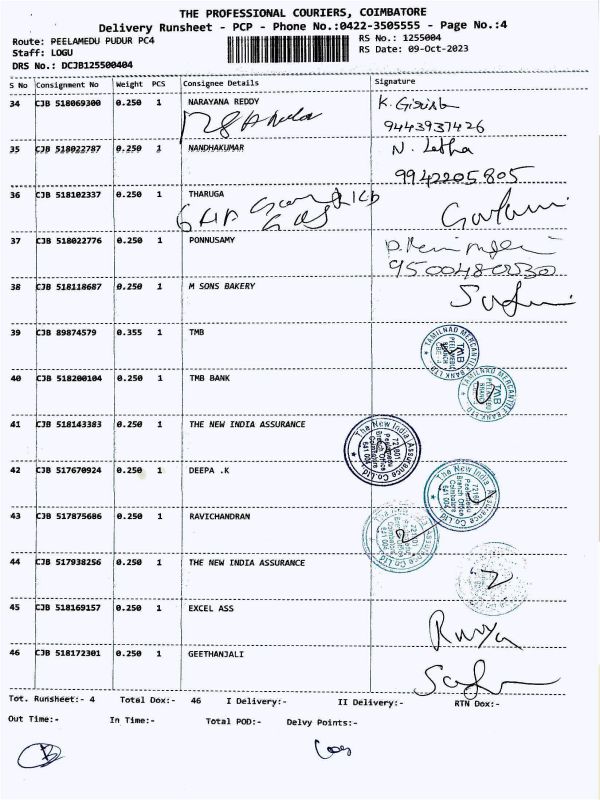 THE PROFESSIONAL COURIERS, COIMBATORE
Delivery Runsheet - PCP - Phone No.:0422-3505555 - Page No.:4
Route: PEELAMEDU PUDUR PC4
RS No.: 1255004
Staff: LOGU
RS Date: 09-Oct-2023
DRS No.: DCJB125500404
S No Consignment No Weight PCS Consignee Details Signature
34 CJB 518069300 0.250 1 NARAYANA REDDY K. Girish
9443937426
35 CJB 518022787 0.250 1 NANDHAKUMAR N. Letha
9942205805
36 CJB 518102337 0.250 1 THARUGA
37 CJB 518022776 0.250 1 PONNUSAMY
38 CJB 518118687 0.250 1 M SONS BAKERY
39 CJB 89874579 0.355 1 TMB
TAMILNAD MERCANTILE BANK LTD
TMB
40 CJB 518200104 0.250 1 TMB BANK
TAMILNAD MERCANTILE BANK LTD
TMB
41 CJB 518143383 0.250 1 THE NEW INDIA ASSURANCE
The New India Assurance Co Ltd
721801
Peelamedu
Branch Office
Coimbatore
641 004
42 CJB 517670924 0.250 1 DEEPA .K
The New India Assurance Co Ltd
721801
Peelamedu
Branch Office
Coimbatore
641 004
43 CJB 517875686 0.250 1 RAVICHANDRAN
44 CJB 517938256 0.250 1 THE NEW INDIA ASSURANCE
45 CJB 518169157 0.250 1 EXCEL ASS
46 CJB 518172301 0.250 1 GEETHANJALI
Tot. Runsheet:- 4 Total Dox:- 46 I Delivery:- II Delivery:- RTN Dox:-
Out Time:- In Time:- Total POD:- Delvy Points:-